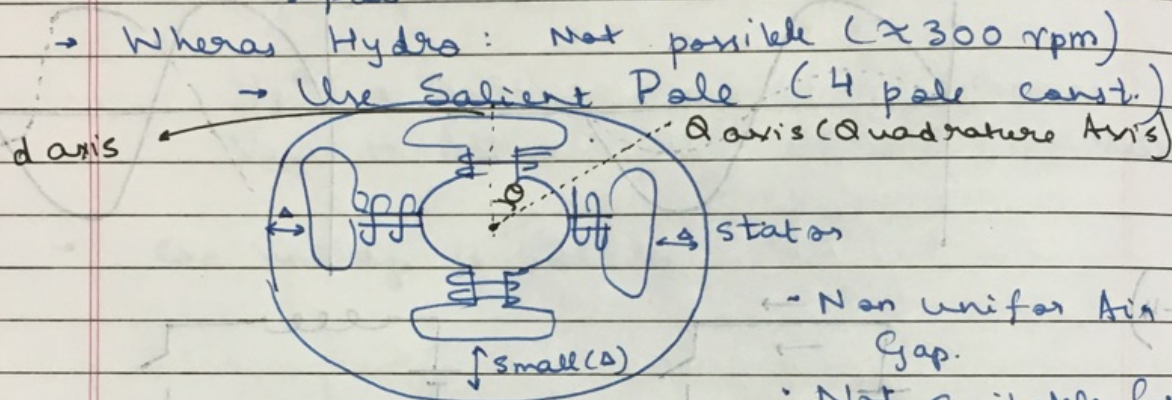 → Wheras Hydro: Not possible (≈300 rpm)
→ Use Salient Pole (4 pole const.)
d axis
Q axis (Quadrature Axis)
θ
Δ
Δ
stator
- Non unifor Air
Gap.
small(Δ)